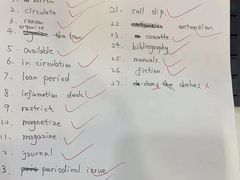 2. circulate
3. renew
organise
4. the loan
5. available
6. in circulation
7. loan period
8. information desk
9. restrict
10. magnetize
11. magazine
2. journal
3. periodical issue
21. call slip
22. extension
23. cassette
24. bibliography
25. manuals
26. fiction
27. shelves